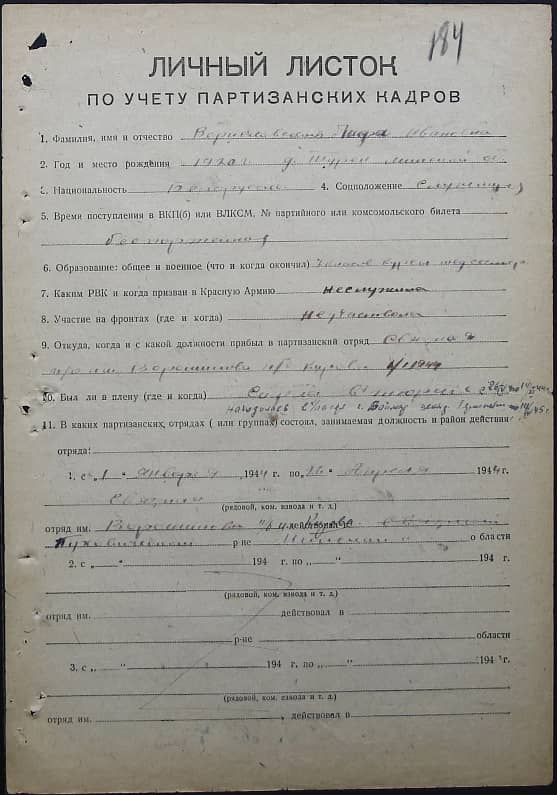 184
ЛИЧНЫЙ ЛИСТОК
ПО УЧЕТУ ПАРТИЗАНСКИХ КАДРОВ
1. Фамилия, имя и отчество Ивановна
2. Год и место рождения 1920 г. д.
3. Национальность Белоруска 4. Соцположение Служащая
5. Время поступления в ВКП(б) или ВЛКСМ, № партийного или комсомольского билета
беспартийная
6. Образование: общее и военное (что и когда окончил) 7 классов курсы медсестер
7. Каким РВК и когда призван в Красную Армию неслужила
8. Участие на фронтах (где и когда) Неучаствовала
9. Откуда, когда и с какой должности прибыл в партизанский отряд
им. Ворошилова 1944
10. Был ли в плену (где и когда)
Находилась
11. В каких партизанских, отрядах (или группах) состоял, занимаемая должность и район действия
отряда:
1. с "1" Января 1944 г. по Апреля 1944 г.
Связная
(рядовой, ком. взвода и т. д.)
отряд им. Ворошилова действовал
Пуховичском р-не Минской о области
2. с „ “ 194 г. по „ “ 194 г.
(рядовой, ком. взвода и т. д.)
отряд им. действовал в
р-не области
3. с „ “ 194 г. по „ “ 194 г.
(рядовой, ком. взвода и т. д.)
отряд им. , действовал в